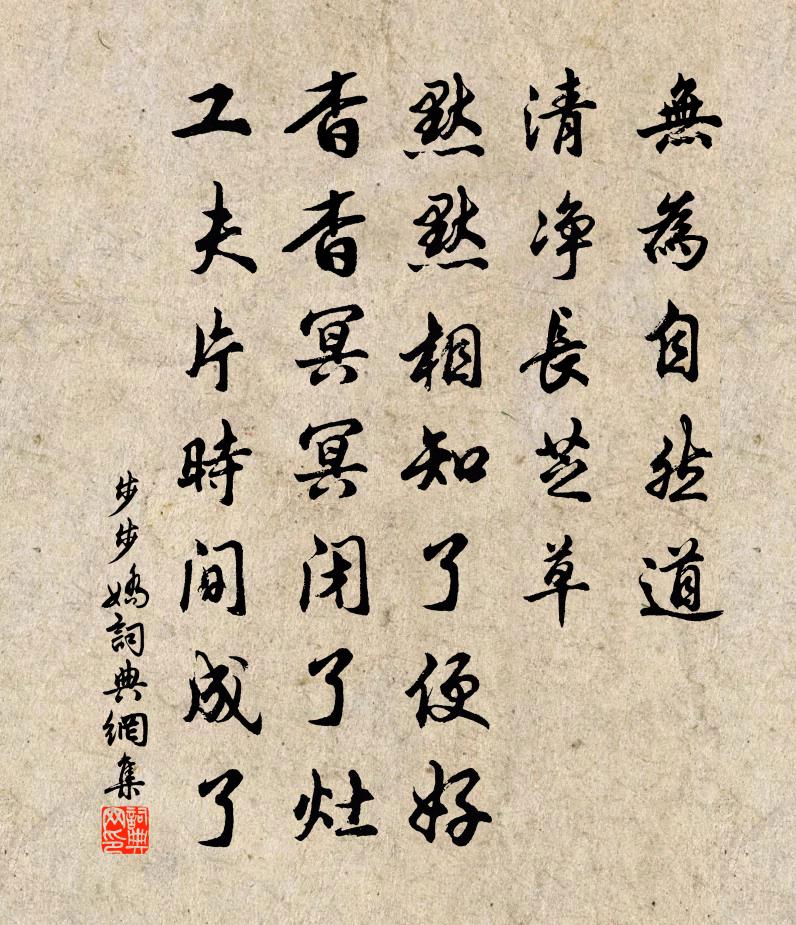 無為自然道
清净長芝草
默默相知了便好
杳杳冥冥閉了灶
工夫片時間成了
步步嬌詞典網集
詞典网印